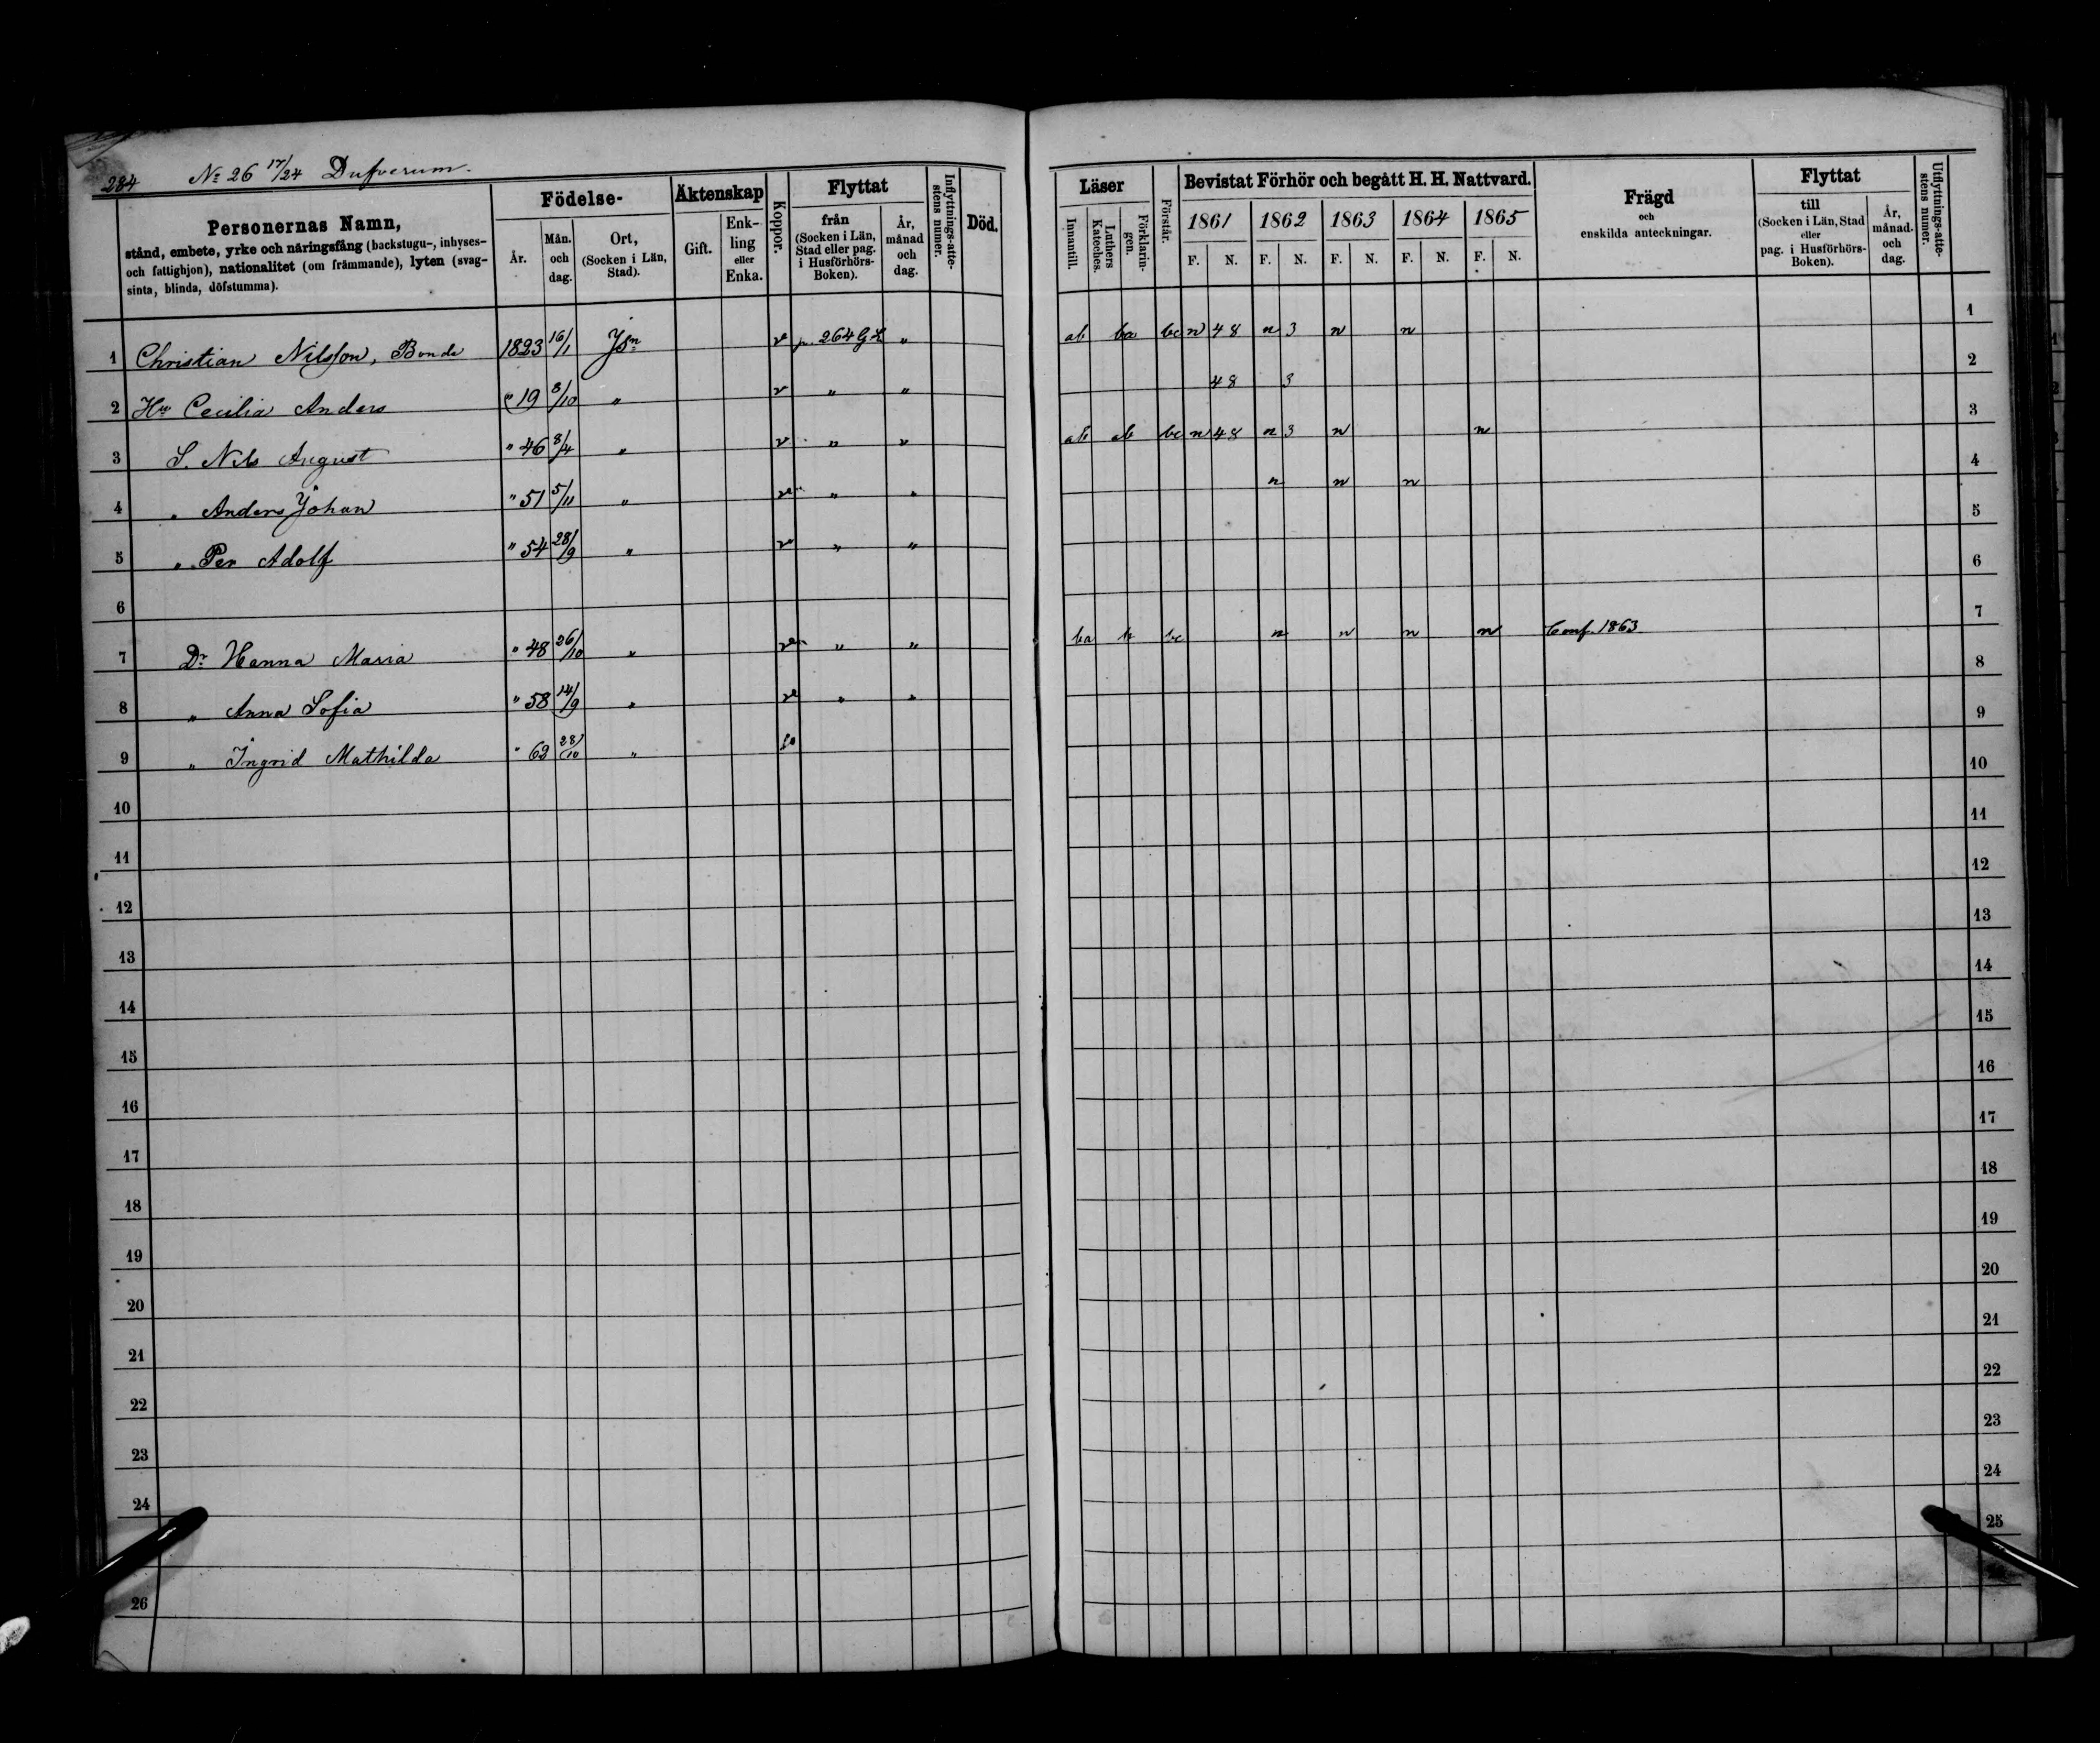 284 № 26 17/24 Dufverum.
Personernas Namn,
stånd, embete, yrke och näringsfång (backstugu-, inhyses-
och fattighjon), nationalitet (om främmande), lyten (svag-
sinta, blinda, döfstumma).
Födelse-
År.
Mån. och dag.
Ort, (Socken i Län, Stad).
Äktenskap
Gift.
Enk-ling eller Enka.
Koppor.
Flyttat
från (Socken i Län, Stad eller pag. i Husförhörs-Boken).
År, månad och dag.
Inflyttnings-atte-stens numer.
Död.
1 Christian Nilsson, Bonde 1823 16/1 Jsn v p. 264 G L "
2 Hu Cecilia Anders " 19 8/10 " v " "
3 S. Nils August " 46 8/4 " v " "
4 " Anders Johan " 51 5/11 " v " "
5 " Per Adolf " 54 28/9 " v " "
6
7 Dr Hanna Maria " 48 26/10 " v " "
8 " Anna Sofia " 58 14/9 " v " "
9 " Ingrid Mathilda " 62 28/10 "
10
11
12
13
14
15
16
17
18
19
20
21
22
23
24
26
Läser
Innantill.
Luthers Kateches.
Förklarin-gen.
Förstår.
Bevistat Förhör och begått H. H. Nattvard.
1861 1862 1863 1864 1865
F. N. F. N. F. N. F. N. F. N.
Frägd
och
enskilda anteckningar.
Flyttat
till (Socken i Län, Stad eller pag. i Husförhörs-Boken).
År, månad och dag.
Utflyttnings-atte-stens numer.
ab ba bc n 48 n 3 n n 1
48 3 2
ab ab bc n 48 n 3 n n 3
n n n 4
5
6
ba b bc n n n n Conf. 1863 7
8
9
10
11
12
13
14
15
16
17
18
19
20
21
22
23
24
25